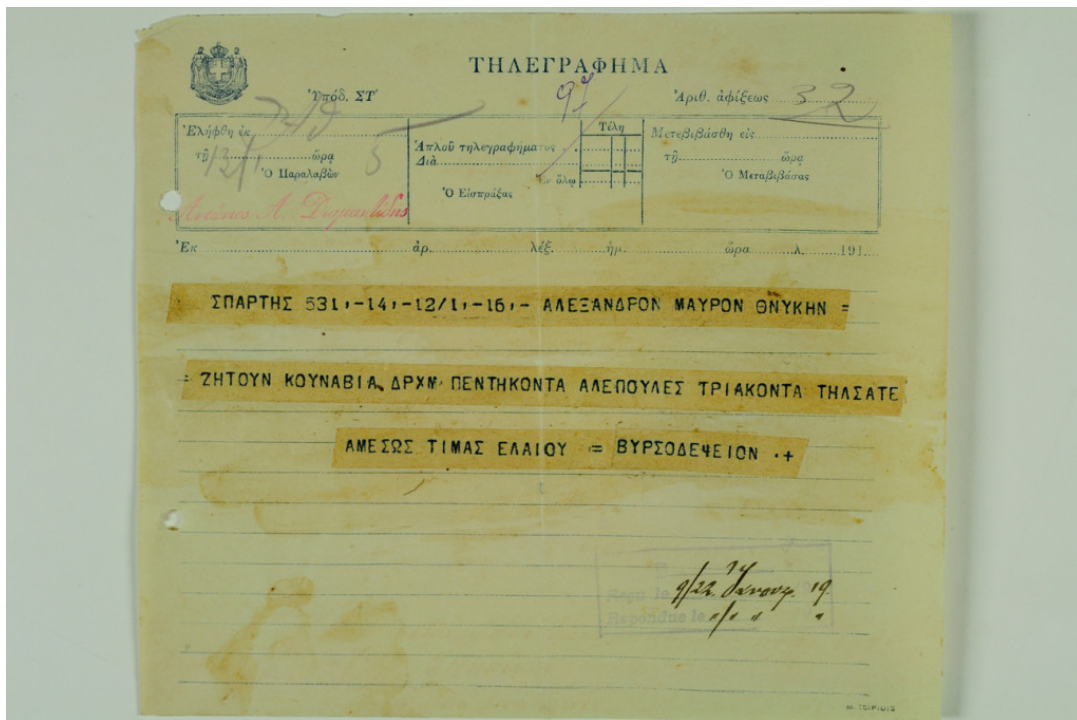 ΤΗΛΕΓΡΑΦΗΜΑ
Ὑπόδ. ΣΤ΄ 97 Ἀριθ. ἀφίξεως 32
Ἐλήφθη ἐκ
τῇ 12/1 ὥρᾳ 5
Ὁ Παραλαβὼν
Ἁπλοῦ τηλεγραφήματος
Διὰ
Ἐν ὅλῳ
Ὁ Εἰσπράξας
Τέλη
Μετεβιβάσθη εἰς
τῇ ὥρᾳ
Ὁ Μεταβιβάσας
Ἐκ ἀρ. λέξ. ἡμ. ὥρα λ. 191
ΣΠΑΡΤΗΣ 531,-14,-12/1,-16,- ΑΛΕΞΑΝΔΡΟΝ ΜΑΥΡΟΝ ΘΝΥΚΗΝ =
= ΖΗΤΟΥΝ ΚΟΥΝΑΒΙΑ ΔΡΧΜ ΠΕΝΤΗΚΟΝΤΑ ΑΛΕΠΟΥΛΕΣ ΤΡΙΑΚΟΝΤΑ ΤΗΛΣΑΤΕ
ΑΜΕΣΩΣ ΤΙΜΑΣ ΕΛΑΙΟΥ = ΒΥΡΣΟΔΕΨΕΙΟΝ .+
Reçu le 9/22 Ἰανουαρ. 19
Repondue le